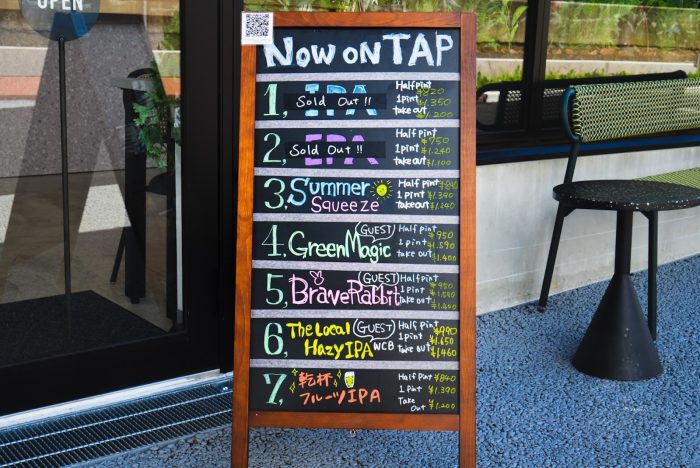 OPEN
NOW ON TAP
1, IPA Sold Out !! Half pint ¥820
1 pint ¥1,350
take out ¥1,200
2, EPA Sold Out !! Half pint ¥750
1 pint ¥1,240
take out ¥1,100
3, Summer Squeeze Half pint ¥840
1 pint ¥1,390
take out ¥1,240
4, Green Magic (GUEST) Half pint ¥950
1 pint ¥1,590
take out ¥1,400
5, Brave Rabbit (GUEST) Half pint ¥950
1 pint
take out
6, The Local Hazy IPA (GUEST) WCB Half pint ¥990
1 pint ¥1,650
take out ¥1,460
7, 乾杯 フルーツIPA Half pint ¥840
1 pint ¥1,390
Take Out ¥1,200